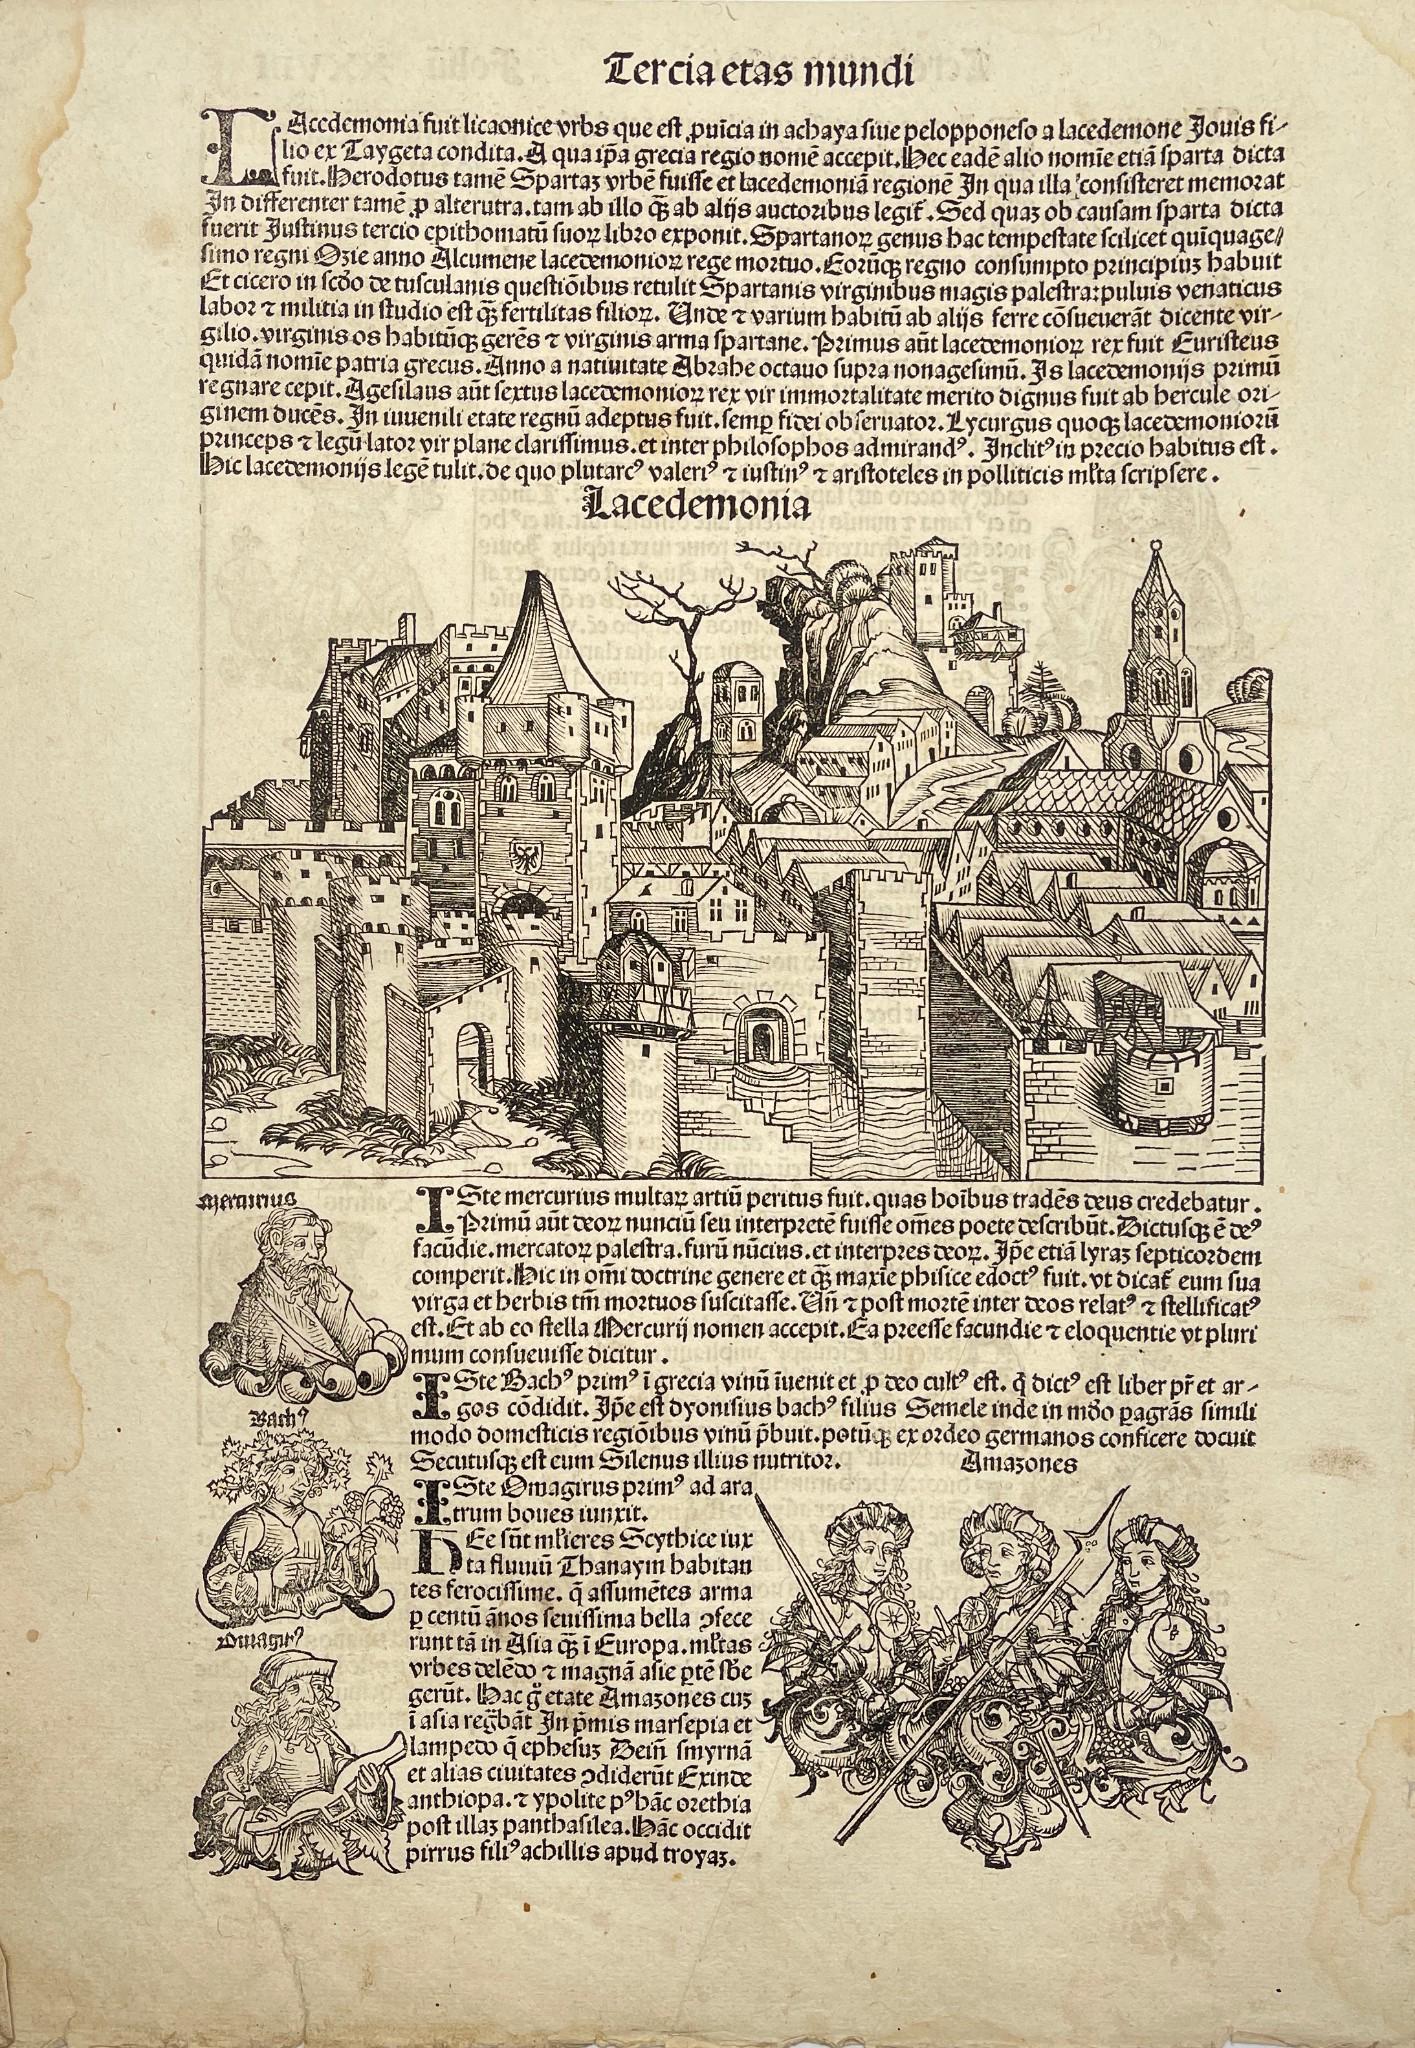 Tercia etas mundi
LAcedemonia fuit licaonice vrbs que est ꝓuīcia in achaya siue pelopponeso a lacedemone Jouis fi-
lio ex Taygeta condita. A qua ip̄a grecia regio nomē accepit. Hec eadē alio nomīe etiā sparta dicta
fuit. Herodotus tamē Spartaꝫ vrbē fuisse et lacedemoniā regionē In qua illa consisteret memorat
In differenter tamē ꝓ alterutra. tam ab illo ꝙ̄ ab alijs auctoribus legit̄. Sed quaꝫ ob causam sparta dicta
fuerit Justinus tercio epithomatū suoꝝ libro exponit. Spartanoꝝ genus hac tempestate scilicet quīquage-
simo regni Ozie anno Alcumene lacedemonioꝝ rege mortuo. Eorūqꝫ regno consumpto principiuꝫ habuit
Et cicero in scd̄o de tusculanis questiōibus retulit Spartanis virginibus magis palestra: puluis venaticus
labor ⁊ militia in studio est ꝙ̄ fertilitas filioꝝ. Unde ⁊ varium habitū ab alijs ferre cōsueuerāt dicente vir-
gilio. virginis os habitūqꝫ gerēs ⁊ virginis arma spartane. Primus aūt lacedemonioꝝ rex fuit Euristeus
quidā nomīe patria grecus. Anno a natiuitate Abrahe octauo supra nonagesimū. Is lacedemonijs primū
regnare cepit. Agesilaus aūt sextus lacedemonioꝝ rex vir immortalitate merito dignus fuit ab hercule ori-
ginem ducēs. In iuuenili etate regnū adeptus fuit. semꝑ fidei obseruator. Lycurgus quoqꝫ lacedemoniorū
princeps ⁊ legū lator vir plane clarissimus. et inter philosophos admirandꝰ. Inclitꝰ in precio habitus est.
Hic lacedemonijs legē tulit. de quo plutarcꝰ valeriꝰ ⁊ iustinꝰ ⁊ aristoteles in polliticis ml̄ta scripsere.
Lacedemonia
Mercurius
ISte mercurius multaꝝ artiū peritus fuit. quas hoībus tradēs deus credebatur.
Primū aūt deoꝝ nunciū seu interpretē fuisse om̄es poete describūt. Dictusqꝫ ē deꝰ
facūdie. mercatoꝝ palestra. furū nūcius. et interpres deoꝝ. Ip̄e etiā lyraꝫ septicordem
comperit. Hic in om̄i doctrine genere et ꝙ̄ maxīe phisice edoctꝰ fuit. vt dicat̄ eum sua
virga et herbis tm̄ mortuos suscitasse. Uñ ⁊ post mortē inter deos relatꝰ ⁊ stellificatꝰ
est. Et ab eo stella Mercurij nomen accepit. Ea preesse facundie ⁊ eloquentie vt pluri
mum consueuisse dicitur.
Bachꝰ
ISte Bachꝰ primꝰ ī grecia vinū īuenit et ꝓ deo cultꝰ est. q̄ dictꝰ est liber pr̄ et ar-
gos cōdidit. Ip̄e est dyonisius bachꝰ filius Semele inde in mōdo ꝑagrās simili
modo domesticis regiōibus vinū p̄buit. potūqꝫ ex ordeo germanos conficere docuit
Secutusqꝫ est eum Silenus illius nutritor.
Amazones
Omagirꝰ
ISte Omagirus primꝰ ad ara
trum boues iunxit.
HEe sūt ml̄ieres Scythice iux
ta fluuiū Thanaym habitan
tes ferocissime. q̄ assumētes arma
ꝑ centū ānos seuissima bella ꝯfece
runt tā in Asia ꝙ̄ ī Europa. ml̄tas
vrbes delēdo ⁊ magnā asie ꝑtē sb̄e
gerūt. Hac ḡ etate Amazones cuꝫ
ī asia reḡbāt In p̄mis marsepia et
lampedo q̄ ephesuꝫ Deiñ smyrnā
et alias ciuitates ꝯdiderūt Exinde
anthiopa. ⁊ ypolite pꝰ hāc orethia
post illaꝫ panthasilea. Hāc occidit
pirrus filiꝰ achillis apud troyaꝫ.